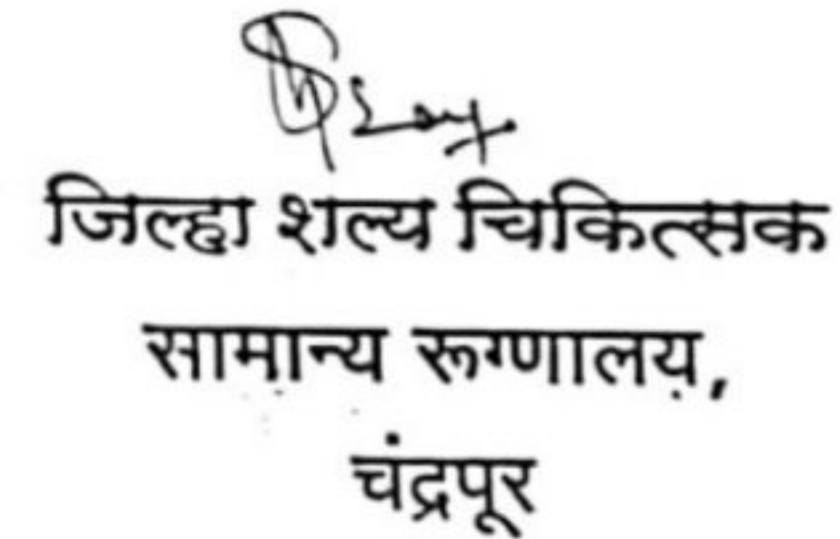 जिल्हा शल्य चिकित्सक
सामान्य रूग्णालय,
चंद्रपूर